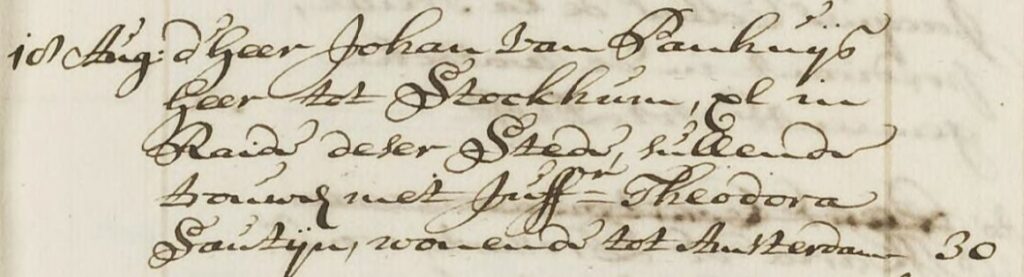 18 Aug: d'Heer Johan van Panhuijs
Heer tot Stockhum, xl in
Raide deser Stede, sullende
trouwen met Juffr Theodora
Sautijn, wonende tot Amsterdam 30